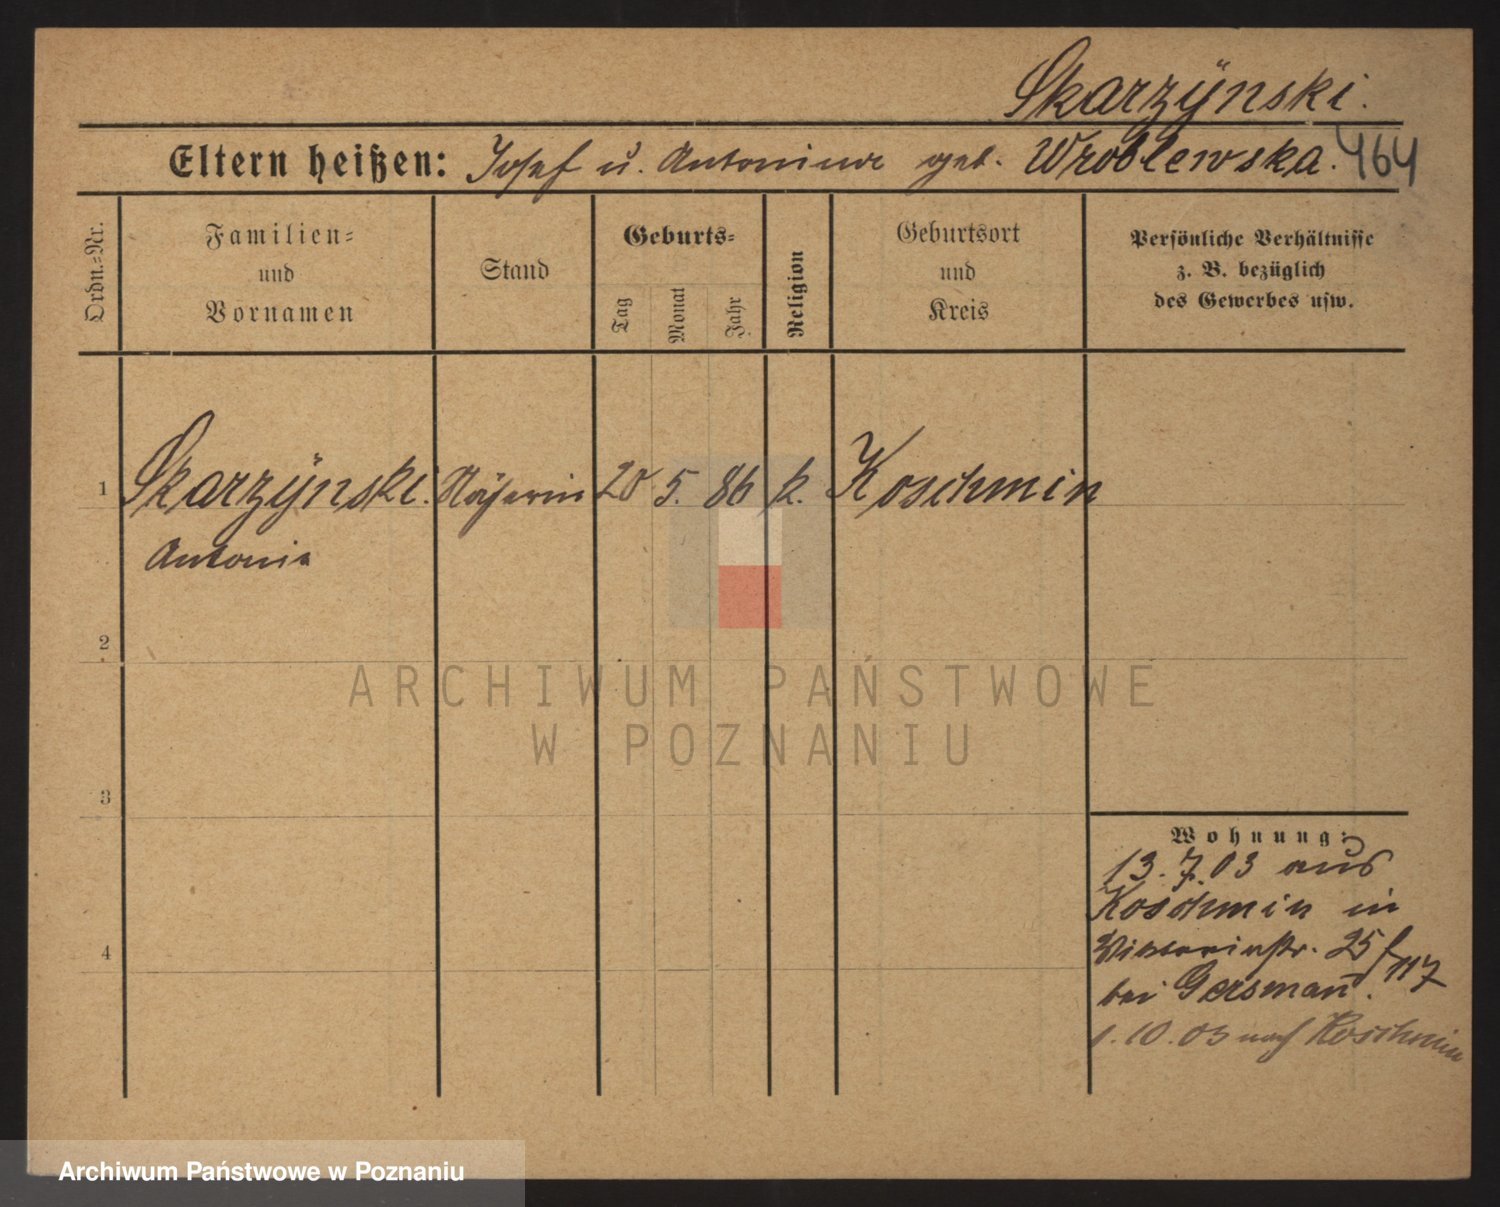 Skarzÿnski.
Eltern heißen: Josef u. Antonine geb. Wroblewska. 464
Ordn.-Nr.
Familien-
und
Vornamen
Stand
Geburts-
Tag
Monat
Jahr
Religion
Geburtsort
und
Kreis
Persönliche Verhältnisse
z. B. bezüglich
des Gewerbes usw.
1 Skarzÿnski. Näherin 20 5. 86 k. Koschmin
Antonia
2
3
4
Wohnung:
13.7.03 aus
Koschmin in
Viktoriastr. 25 f 117
bei Gersmann.
1.10.03 nach Koschmin
ARCHIWUM PAŃSTWOWE
W POZNANIU
Archiwum Państwowe w Poznaniu